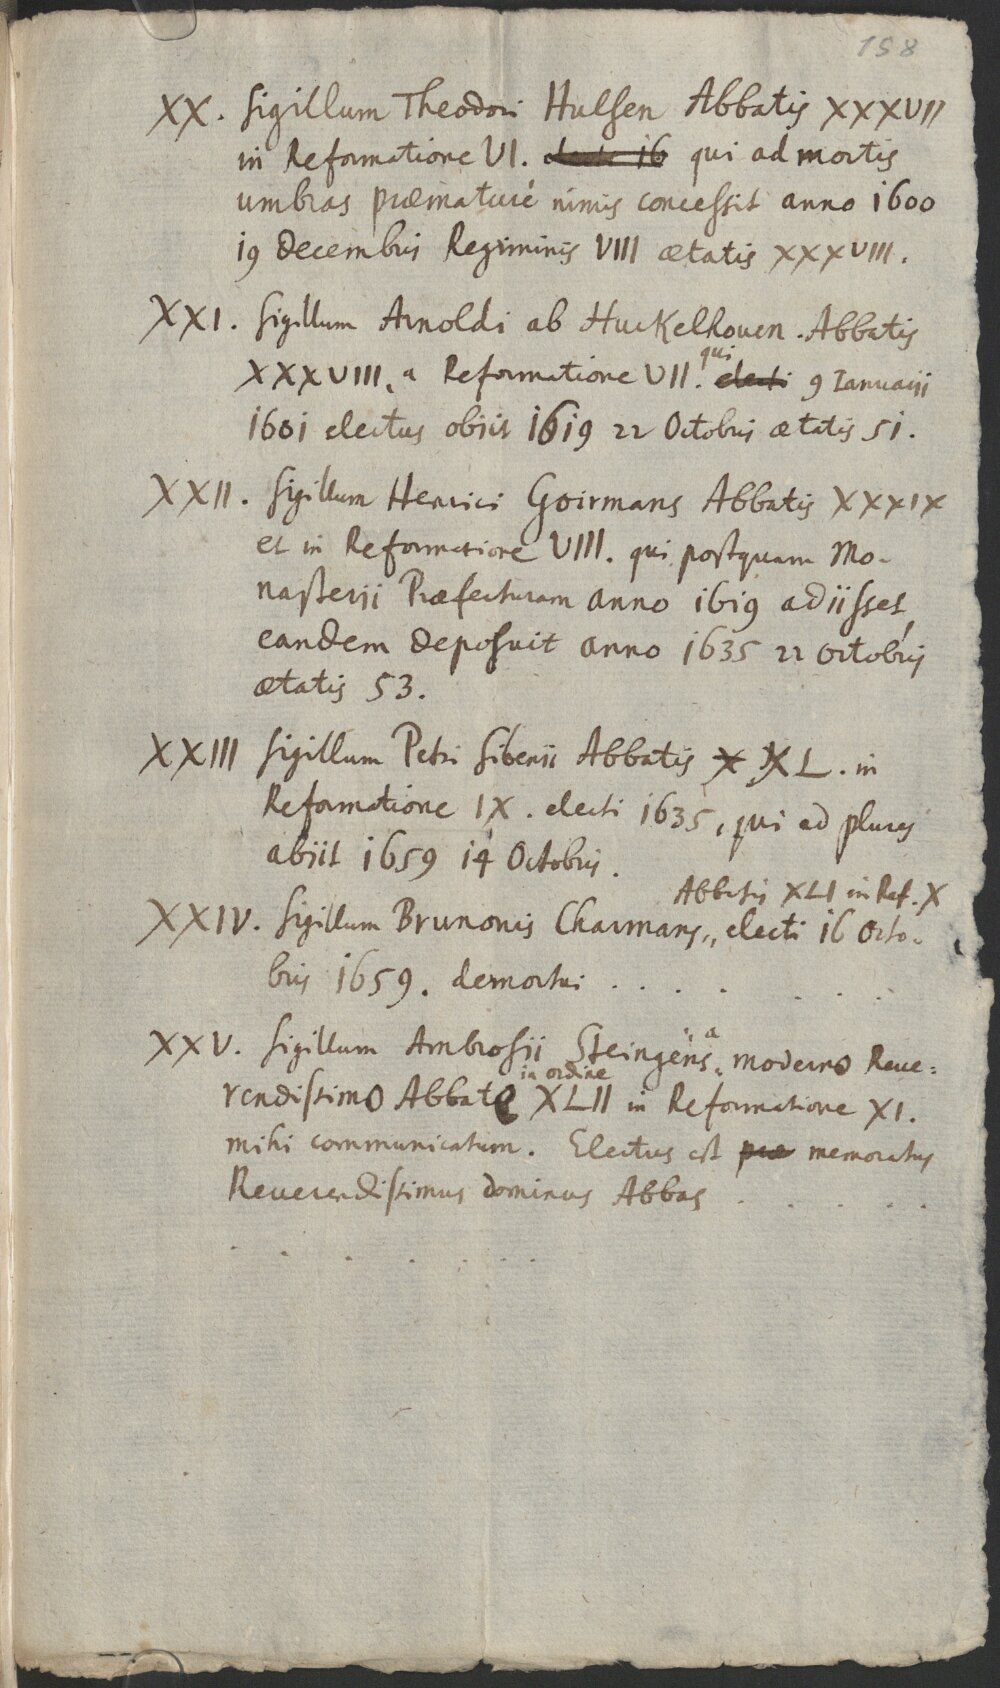 158
XX. Sigillum Theodori Hulsen Abbatis XXXVII
in Reformatione VI. electi 16 qui ad mortis
umbras præmaturè nimis concessit anno 1600
19 Decembris Regiminis VIII ætatis XXXVIII.
XXI. Sigillum Arnoldi ab Huckelhouen. Abbatis
qui
XXXVIII. a Reformatione VII. electi 9 Ianuarii
1601 electus obiit 1619 22 Octobris ætatis 51.
XXII. Sigillum Henrici Goirmans Abbatis XXXIX
et in Reformatione VIII. qui postquam Mo-
nasterii Præfecturam anno 1619 adiisset,
eandem deposuit anno 1635 22 octobris
ætatis 53.
XXIII Sigillum Petri Siberii Abbatis X XL. in
Reformatione IX. electi 1635, qui ad plures
abiit 1659 14 Octobris.
Abbatis XLI in Ref. X
XXIV. Sigillum Brunonis Charmans,, electi 16 Octo-
bris 1659. demortui . . . . . . .
a
XXV. Sigillum Ambrosii Steingens „ moderno Reue=
in ordine
rendissimo Abbate XLII in Reformatione XI.
mihi communicatum. Electus est præ memoratus
Reuerendissimus dominus Abbas . . . . .
. . . . . . .